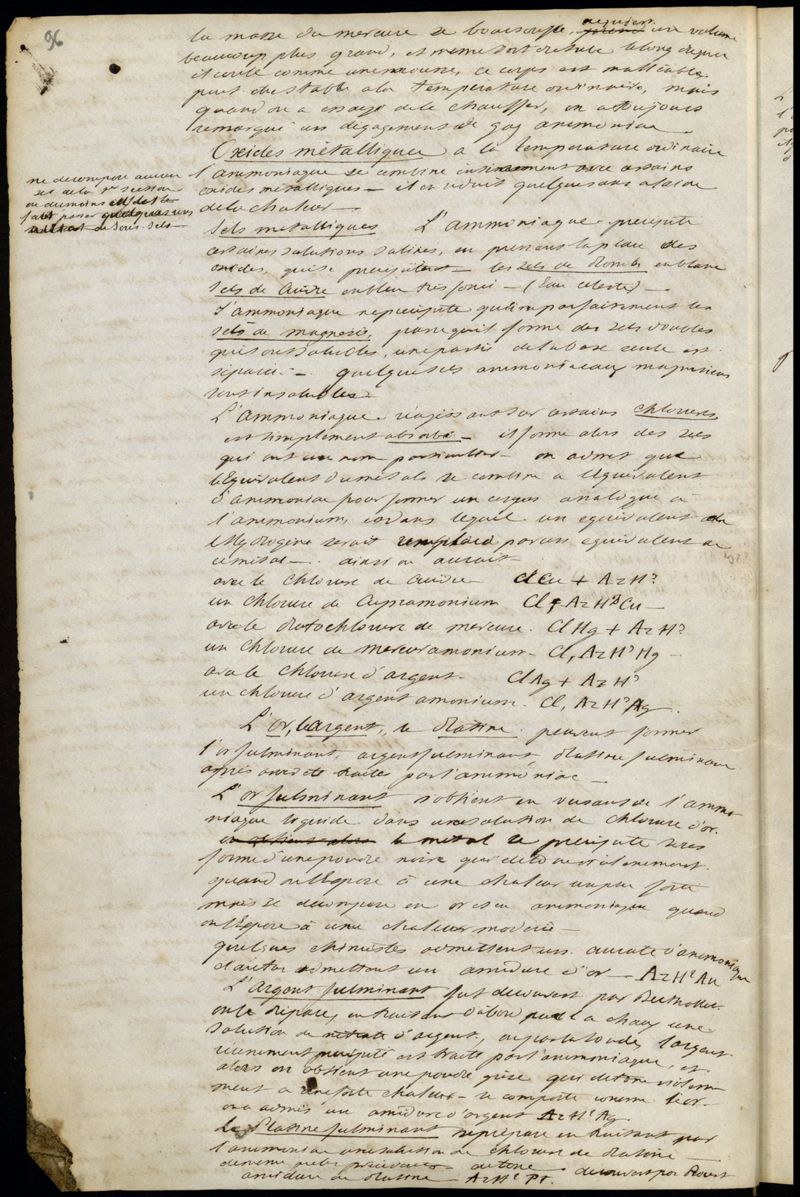 96
la masse du mercure se boursoufle, acquiert un volume
beaucoup plus grand, et même sort
et coule comme une mousse, ce corps est malléable
peut être stable à la température ordinaire, mais
quand on a essayé de le chauffer, on a toujours
remarqué un dégagement de gaz ammoniac
Oxides métalliques a la température ordinaire
l'ammoniaque se combine intimement avec certains
oxides métalliques — il en réduit quelques uns a l'aide
de la chaleur —
ne decompose aucun
sel de la 1re section
ou du moins
fait passer quelques uns
a l'état de sous-sels —
Sels métalliques L'ammoniaque précipite
certaines solutions salines, en prenant la place des
oxides, qui se précipitent — les sels de Plomb en blanc
sels de Cuivre en bleu très foncé — (Eau céleste) —
L'ammoniaque ne précipite qu'imparfaitement les
sels de magnésie, parce qu'il forme des sels doubles
qui sont solubles, une partie de la base seule est
séparée. — quelques sels ammoniacaux magnésiens
sont insolubles
L'Ammoniaque réagissant sur certains chlorures
est simplement absorbé — il forme alors des sels
qui ont un nom particulier — on admet que
l'équivalent du métal se combine a l'équivalent
d'ammoniac pour former un corps analogue à
l'ammonium, dans lequel un équivalent de
l'Hydrogène serait remplacé par un équivalent de
ce métal — ainsi on aurait
avec le chlorure de Cuivre ClCu + AzH³
un chlorure de Cupramonium Cl, AzH³Cu —
avec le Protochlorure de mercure. ClHg + AzH³
un chlorure de mercuramonium — Cl, AzH³Hg —
avec le chlorure d'argent. ClAg + AzH³
un chlorure d'argent amonium. Cl, AzH³Ag.
L'or, l'Argent, le Platine peuvent former
l'or fulminant, argent fulminant, Platine fulminant
après avoir été traités par l'ammoniac —
L'or fulminant s'obtient en versant de l'ammo-
niaque liquide dans une solution de chlorure d'or.
le métal se précipite sous
forme d'une poudre noire qui détone violemment
quand on l'expose à une chaleur un peu forte
mais se décompose en or et en ammoniaque quand
on l'expose à une chaleur modérée —
quelques chimistes admettent un aurate d'ammoniaque
d'autres admettent un amidure d'or — AzH²Au
L'Argent fulminant fut découvert par Berthollet
on le prépare, en traitant d'abord par la chaux une
solution de nitrate d'argent, l'argent
récemment précipité est traité par l'ammoniaque, et
alors on obtient une poudre grise qui détone violem-
ment a une forte chaleur — se comporte comme l'or.
on a admis un amidure d'argent AzH²Ag
Le Platine fulminant se prépare en traitant par
l'ammoniac une solution de chlorure de Platine —
détone découvert par Proust
amidure de Platine — AzH² Pt.